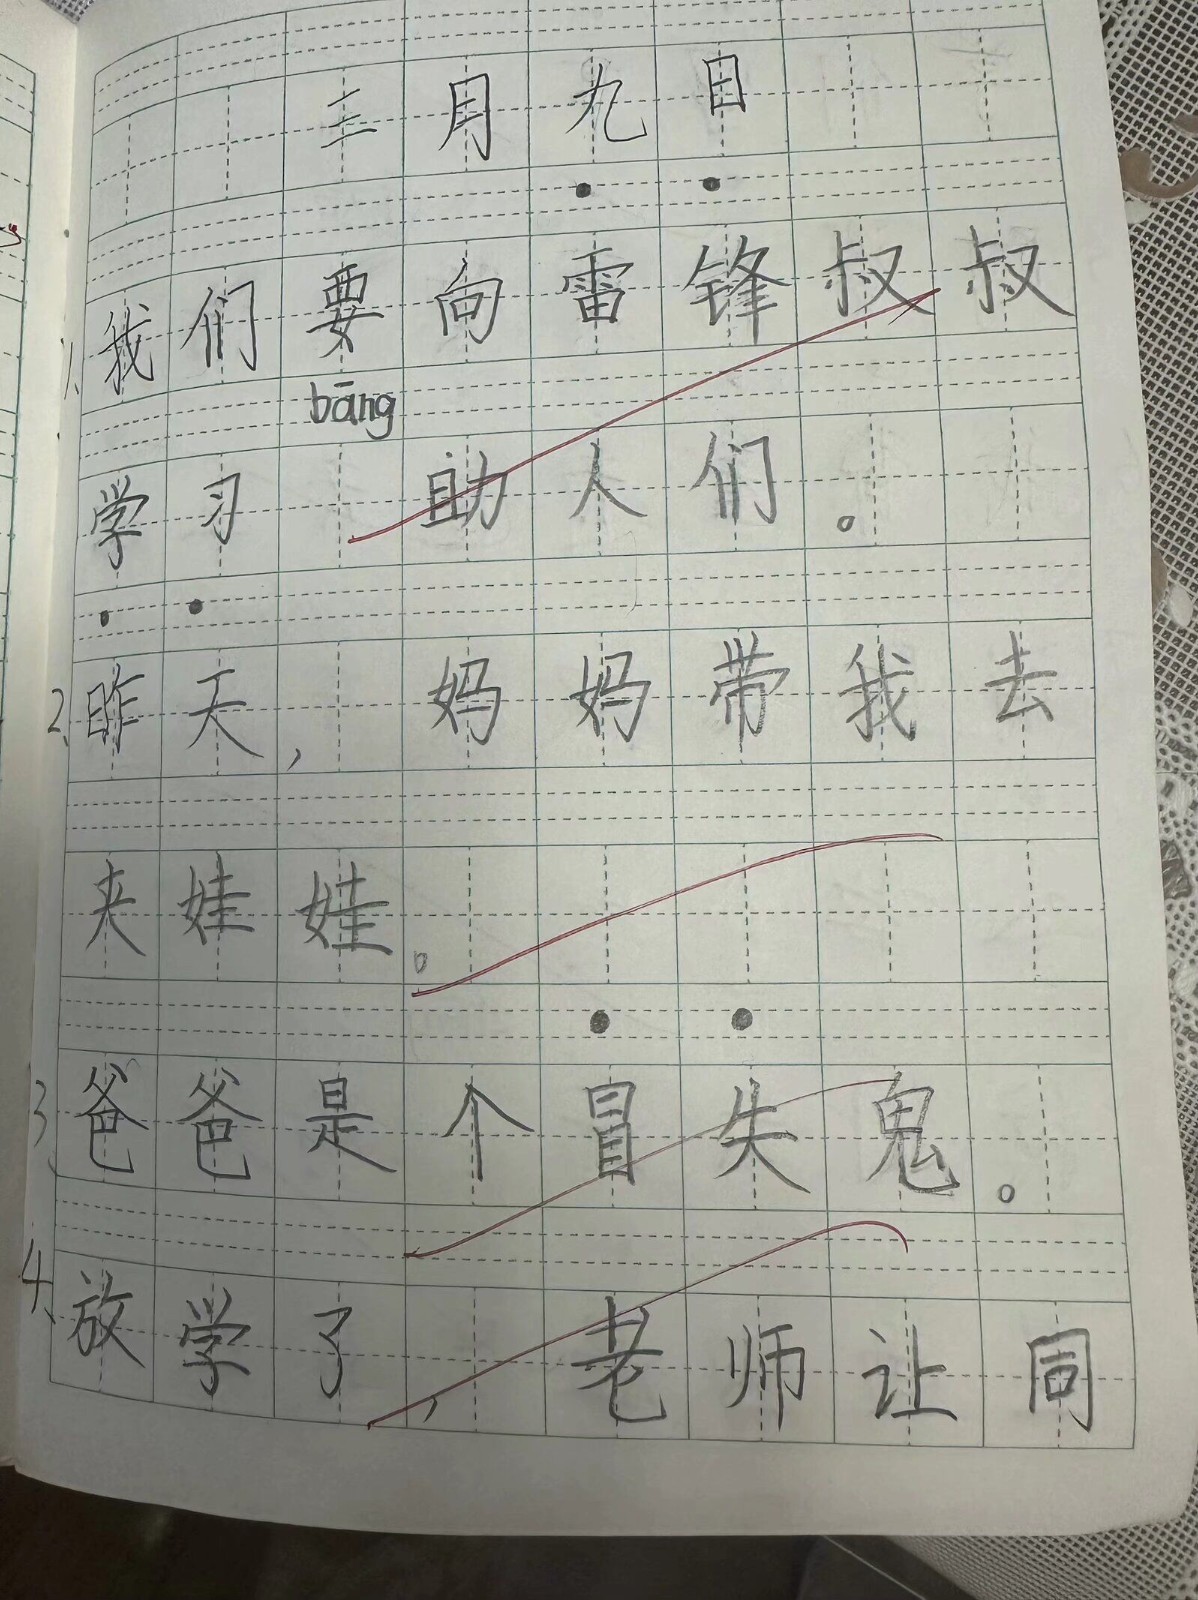 三月九日
1、我们要向雷锋叔叔
bāng
学习助人们。
2、昨天，妈妈带我去
夹娃娃。
3、爸爸是个冒失鬼。
4、放学了，老师让同